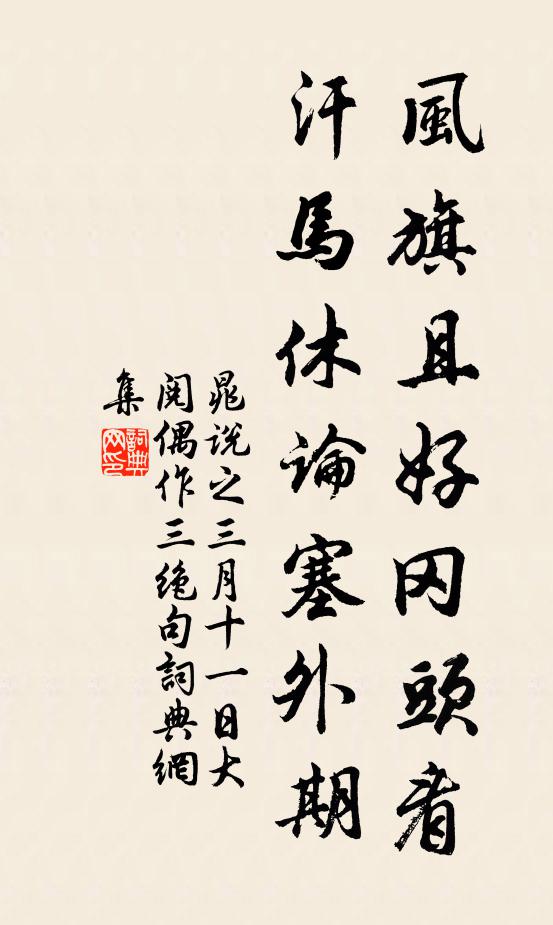 風旗且好冈頭看
汗馬休論塞外期
晁說之三月十一日大
閱偶作三絕句詞典網
集
詞典
网印